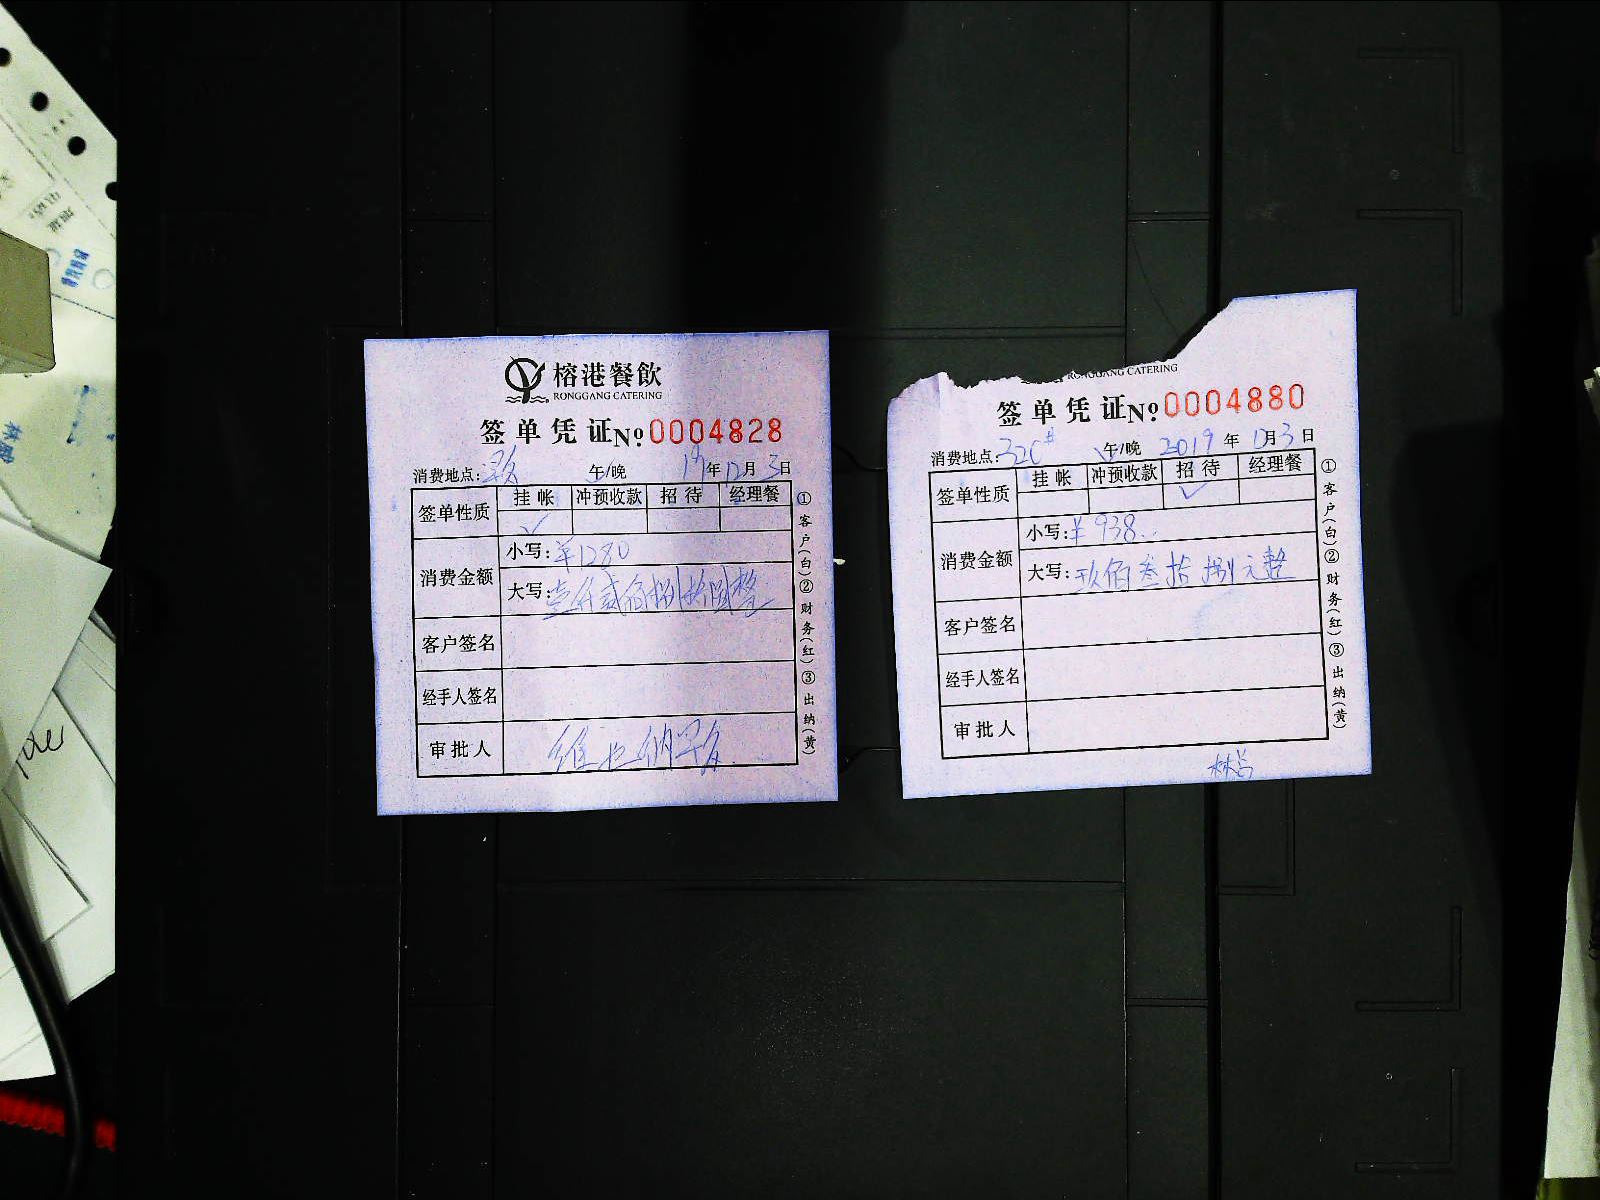 榕港餐飲
RONGGANG CATERING
签单凭证No 0004828
消费地点: 午/晚 19年12月3日
签单性质 挂帐 冲预收款 招待 经理餐
√
消费金额 小写:¥1280
大写:壹仟贰佰捌拾圆整
客户签名
经手人签名
审批人 维也纳早
①客户(白)②财务(红)③出纳(黄)
RONGGANG CATERING
签单凭证No 0004880
消费地点:320# 午/晚 2019年12月3日
签单性质 挂帐 冲预收款 招待 经理餐
√
消费金额 小写:¥938
大写:玖佰叁拾捌元整
客户签名
经手人签名
审批人
林总
①客户(白)②财务(红)③出纳(黄)